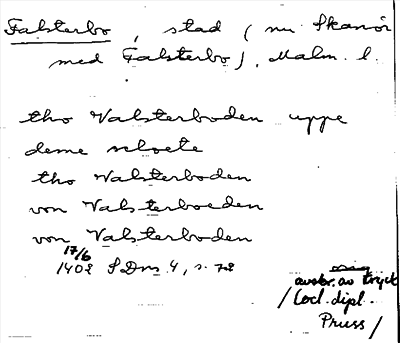 Falsterbo, stad (nu Skanör
med Falsterbo), Malm. l.
tho Valsterboden uppe
deme schoete
tho Valsterboden
von Valsterboeden
von Valsterboden
17/6
1402 SDns 4, s. 72
avskr. av tryck
/Cod. dipl.
Pruss/